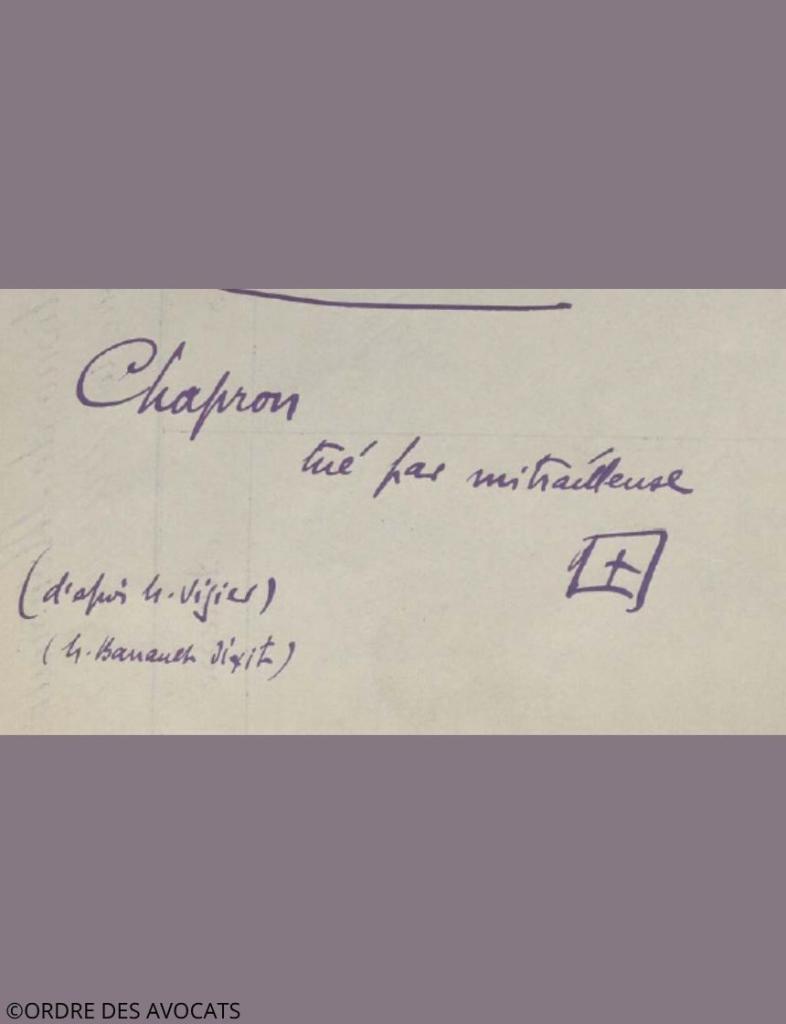 Chapron
tué par mitrailleuse
+
(d'après M. Vigier)
(M. dixit)
©ORDRE DES AVOCATS